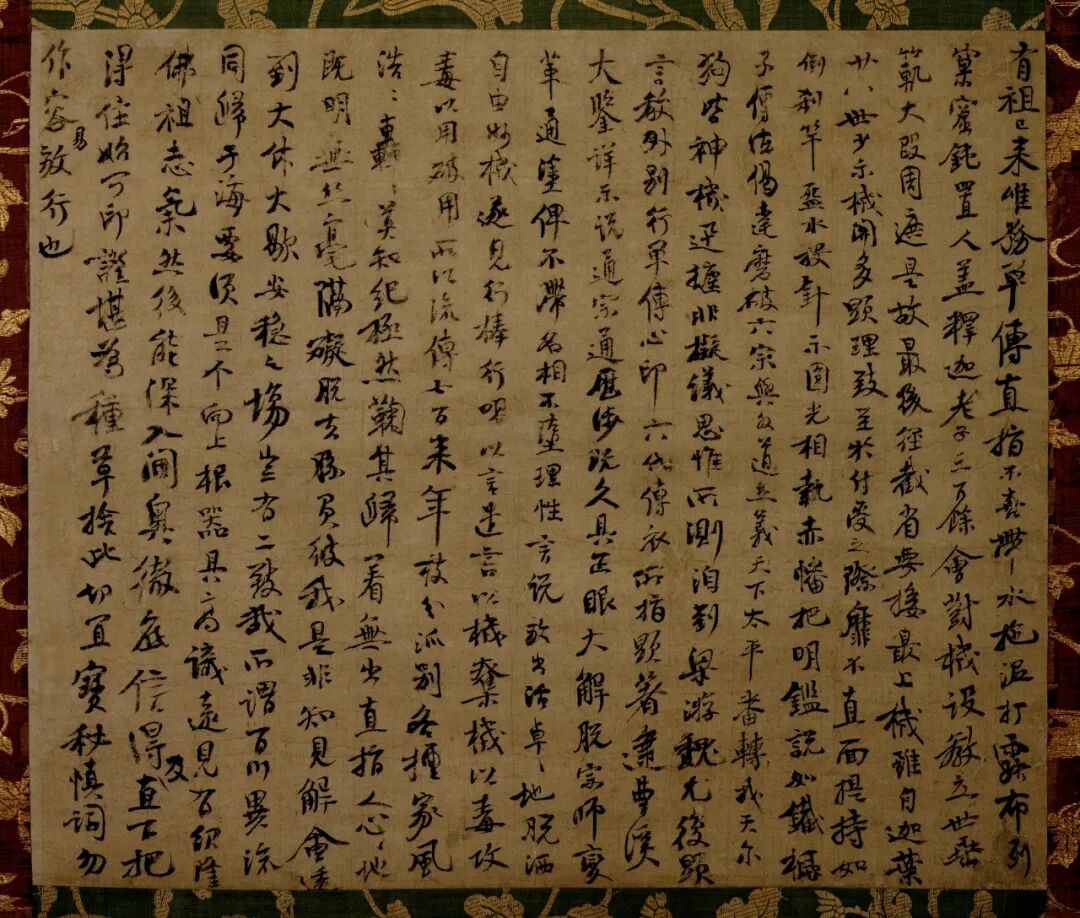 有祖已来唯務單傳直指不喜帶水拖泥打露布列
窠窟鈍置人盖釋迦老子三百餘會對機設教立世垂
範大段周遮是故最後徑截省要接最上機雖自迦葉
廿八世少示機関多顕理致至於付受之際靡不直面提持如
倒刹竿盋水投針示圓光相執赤幡把明鑑説如鐵橛
子傳法偈達磨破六宗與外道立義天下太平番轉我天尓
狗皆神機迅捷非擬議思惟所測洎到梁游魏尤復顕
言教外別行單傳心印六代傳衣所指顕著逮曹溪
大鑒詳示説通宗通歴渉既久具正眼大解脱宗師變
革通塗俾不滯名相不墮理性言説放出活卓〻地脱洒
自由妙機遂見行棒行喝以言遣言以機奪機以毒攻
毒以用破用所以流傳七百来年枝分派別各擅家風
浩〻轟〻莫知紀極然鞠其歸著無出直指人心〻地
既明無絲毫隔礙脱去勝負彼我是非知見解會透
到大休大歇安穩之場豈有二致哉所謂百川異流
同歸于海要須是个向上根器具高識遠見有紹隆
佛祖志氣然後能深入閫奥徹底信得及直下把
得住始可印證堪為種草捨此切宜寶秘慎詞勿
作容易放行也